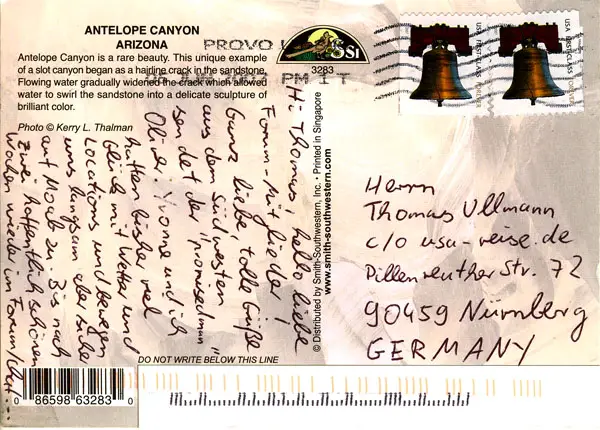 ANTELOPE CANYON
ARIZONA
Antelope Canyon is a rare beauty. This unique example
of a slot canyon began as a hairline crack in the sandstone.
Flowing water gradually widened the crack which allowed
water to swirl the sandstone into a delicate sculpture of
brilliant color.
Photo © Kerry L. Thalman
PROVO
PM
SSI
3283
USA FIRST-CLASS FOREVER
USA FIRST-CLASS FOREVER
© Distributed by Smith-Southwestern, Inc. • Printed in Singapore
www.smith-southwestern.com
Hi Thomas! Hello liebe
Forum-Mitglieder!
Ganz liebe, tolle Grüße
aus dem Südwesten
sendet der "promisedman"
Oliver. Yvonne und ich
hatten bisher viel
Glück mit Wetter und
Locations und bewegen
uns langsam aber sicher
auf Moab zu. Bis nach
zwei hoffentlich schönen
Wochen wieder im Forum/Chat...
Herrn
Thomas Ullmann
c/o usa-reise.de
Dillenreuther Str. 72
90459 Nürnberg
GERMANY
DO NOT WRITE BELOW THIS LINE
0 86598 63283 0